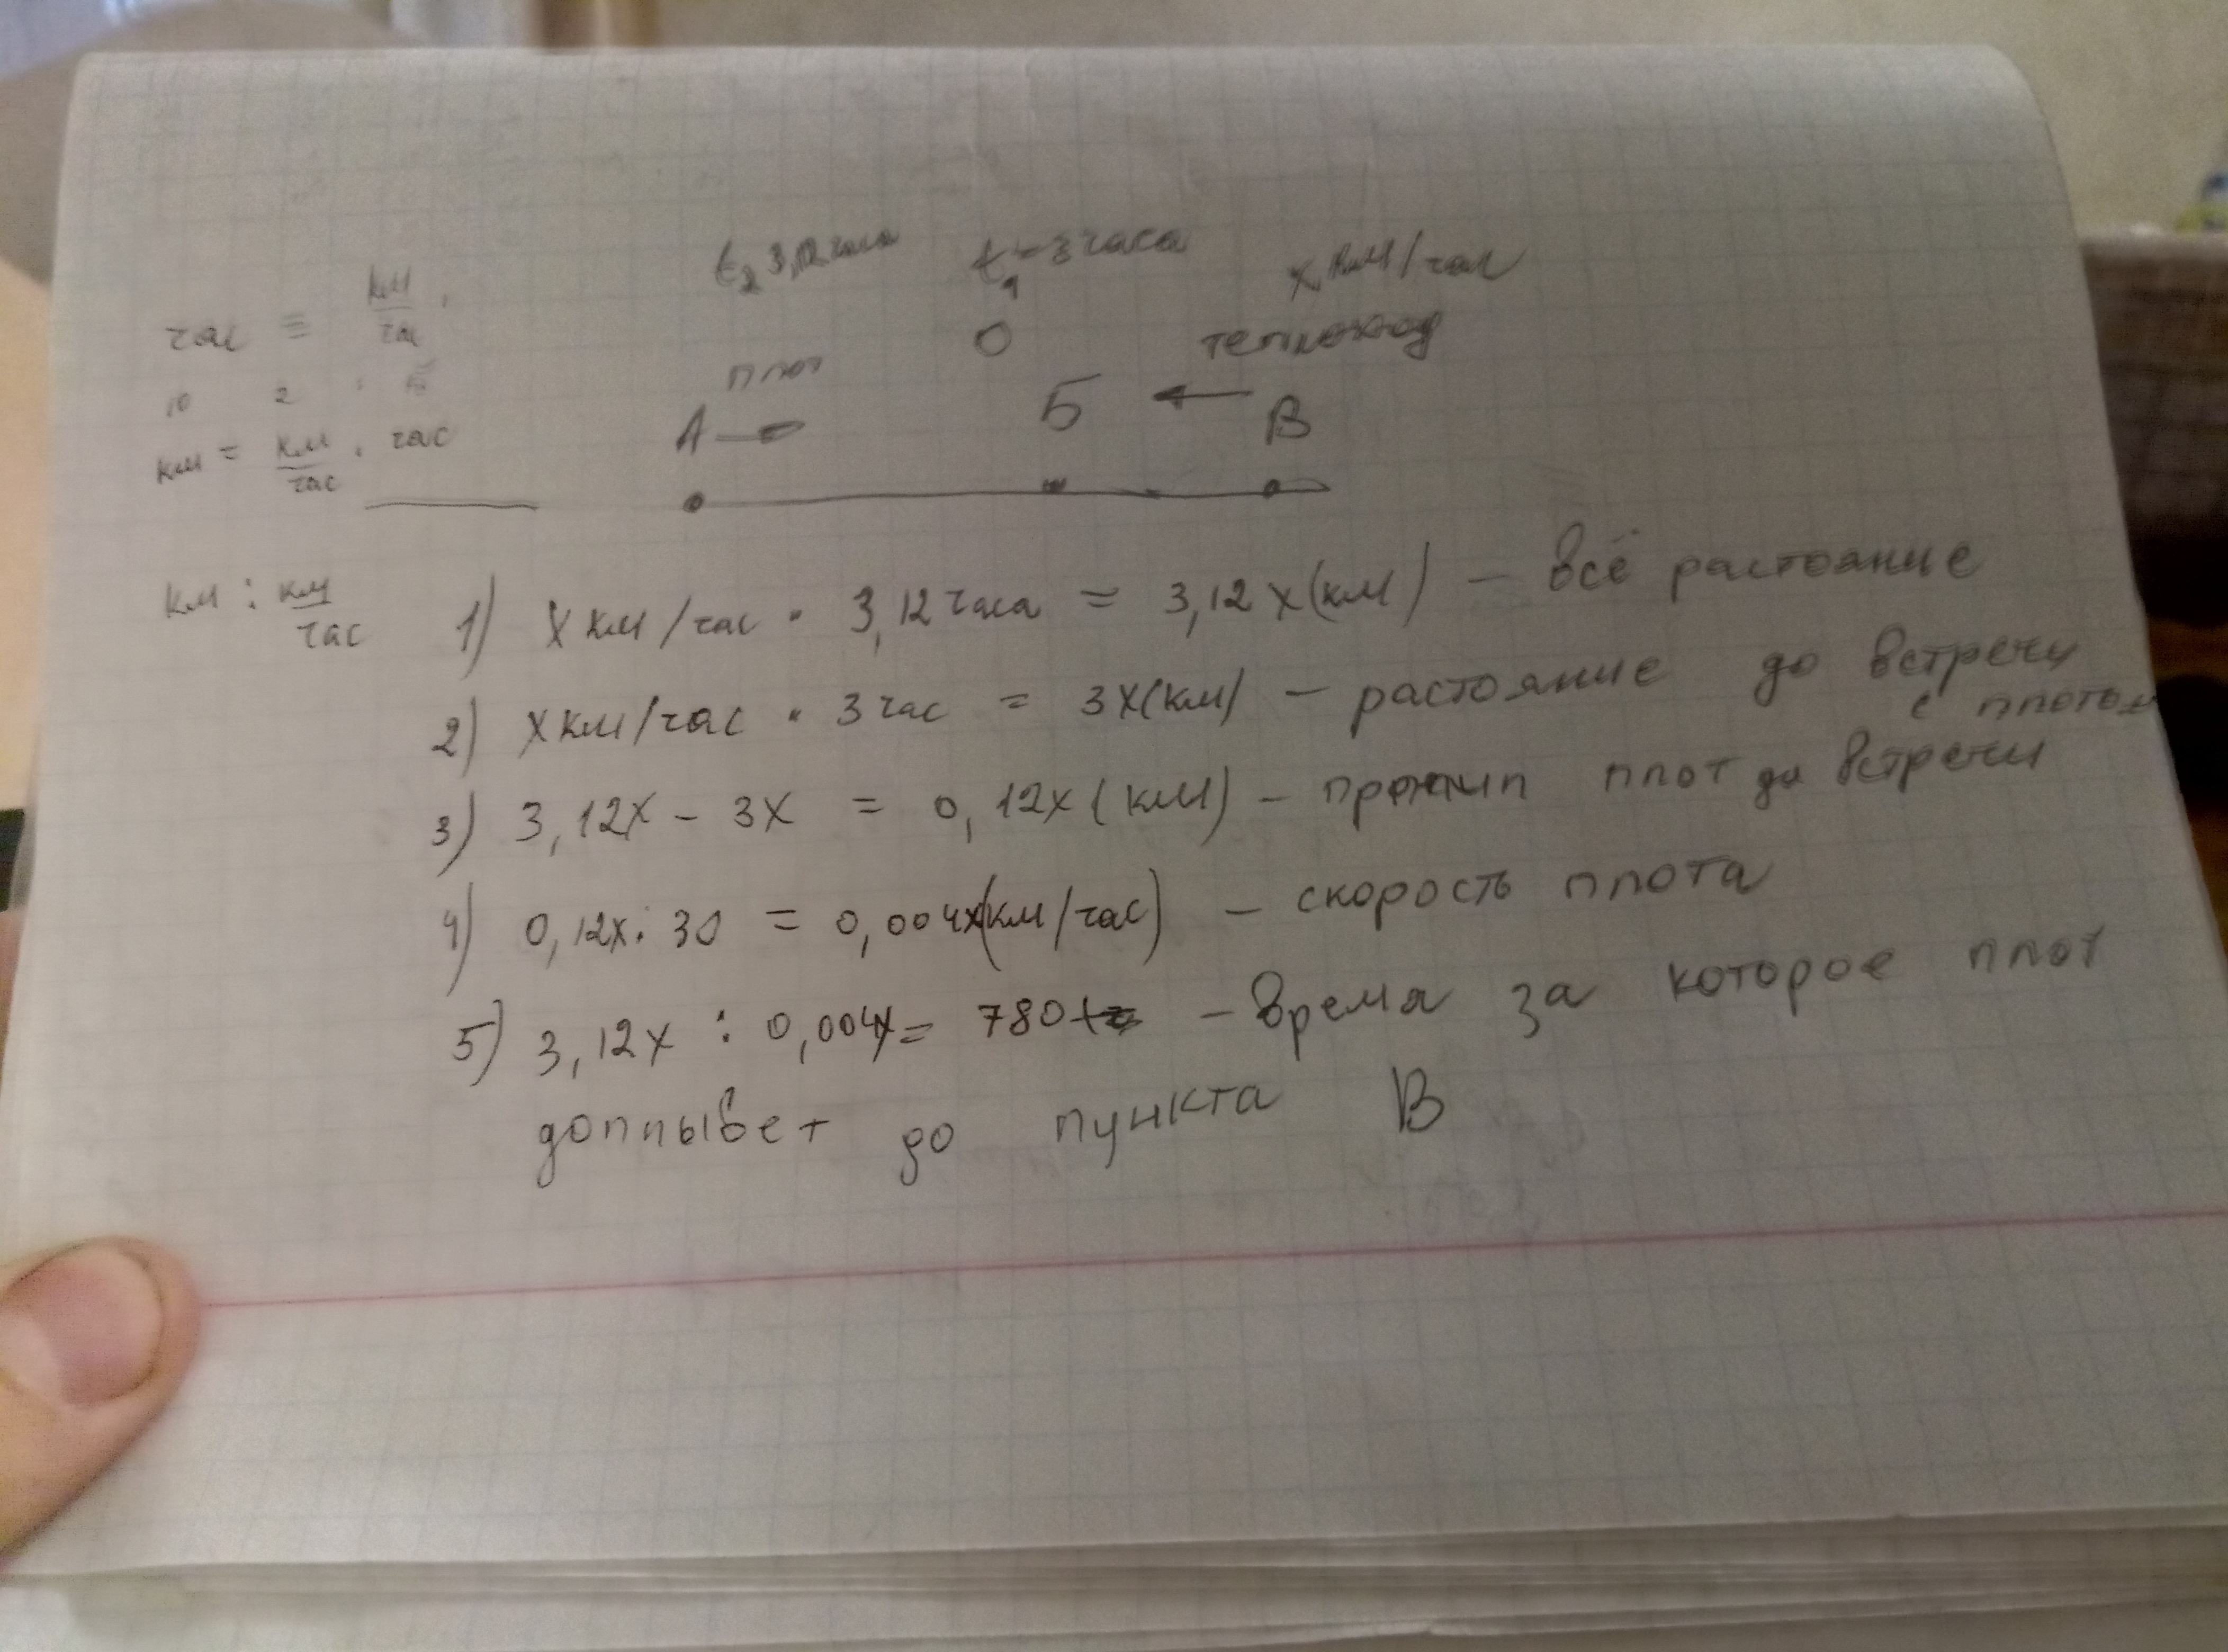 t₂ 3,12 часа t₁ - 3 часа x км/час
О теплоход
плот
А Б В
час = км/час .
10 2 :
км = км/час . час
км : км/час
1) x км/час · 3,12 часа = 3,12 x (км) - всё растояние
2) x км/час · 3 час = 3x (км) - растояние до встречи
с плотом
3) 3,12x - 3x = 0,12x (км) - плот до встречи
4) 0,12x : 30 = 0,004x (км/час) - скорость плота
5) 3,12x : 0,004x = 780 - время за которое плот
доплывет до пункта В